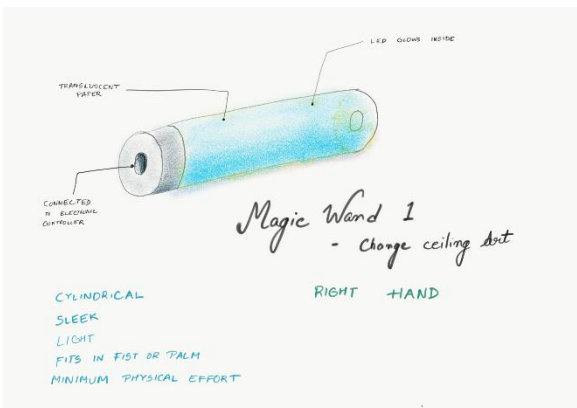 LED GLOWS INSIDE
TRANSLUCENT
PAPER
CONNECTED
TO ELECTRONIC
CONTROLLER
Magic Wand 1
- Change ceiling Art
RIGHT HAND
CYLINDRICAL
SLEEK
LIGHT
FITS IN FIST OR PALM
MINIMUM PHYSICAL EFFORT